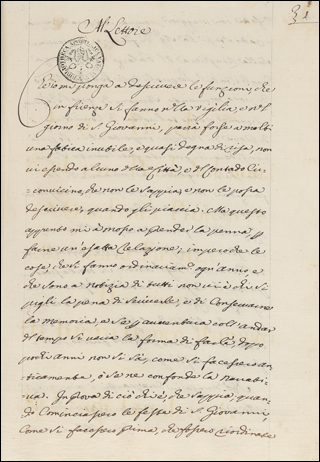 Al Lettore
Ch'io mi ponga a descrivere le funzioni, che
in Firenze si fanno nella vigilia, e nel
giorno di S. Giovanni, parrà forse a molti
una fatica inutile, e quasi degna di risa, non
vi essendo alcuno della Città, e del Contado Cir-
convicino, che non le sappia e non le possa
descrivere, quando gli piaccia. Ma questo
appunto mi à mosso a prender la penna, p
farne un esatta Relazione; imperoche le
cose, che si fanno ordinariam. ogni anno, e
che sono a notizia di tutti non vi è chi si
pigli la pena di scriverle, e di conservarne
la memoria, e se p avventura coll'andar
del tempo si varia la forma di farle, dopo
pochi anni non si sà, come si facessero an-
ticamente, ò se ne confonde la narrati-
va. In prova di ciò chi è, che sappia, quan-
do Cominciassero le feste di S. Giovanni,
Come si facessero prima, che fossero riordinate